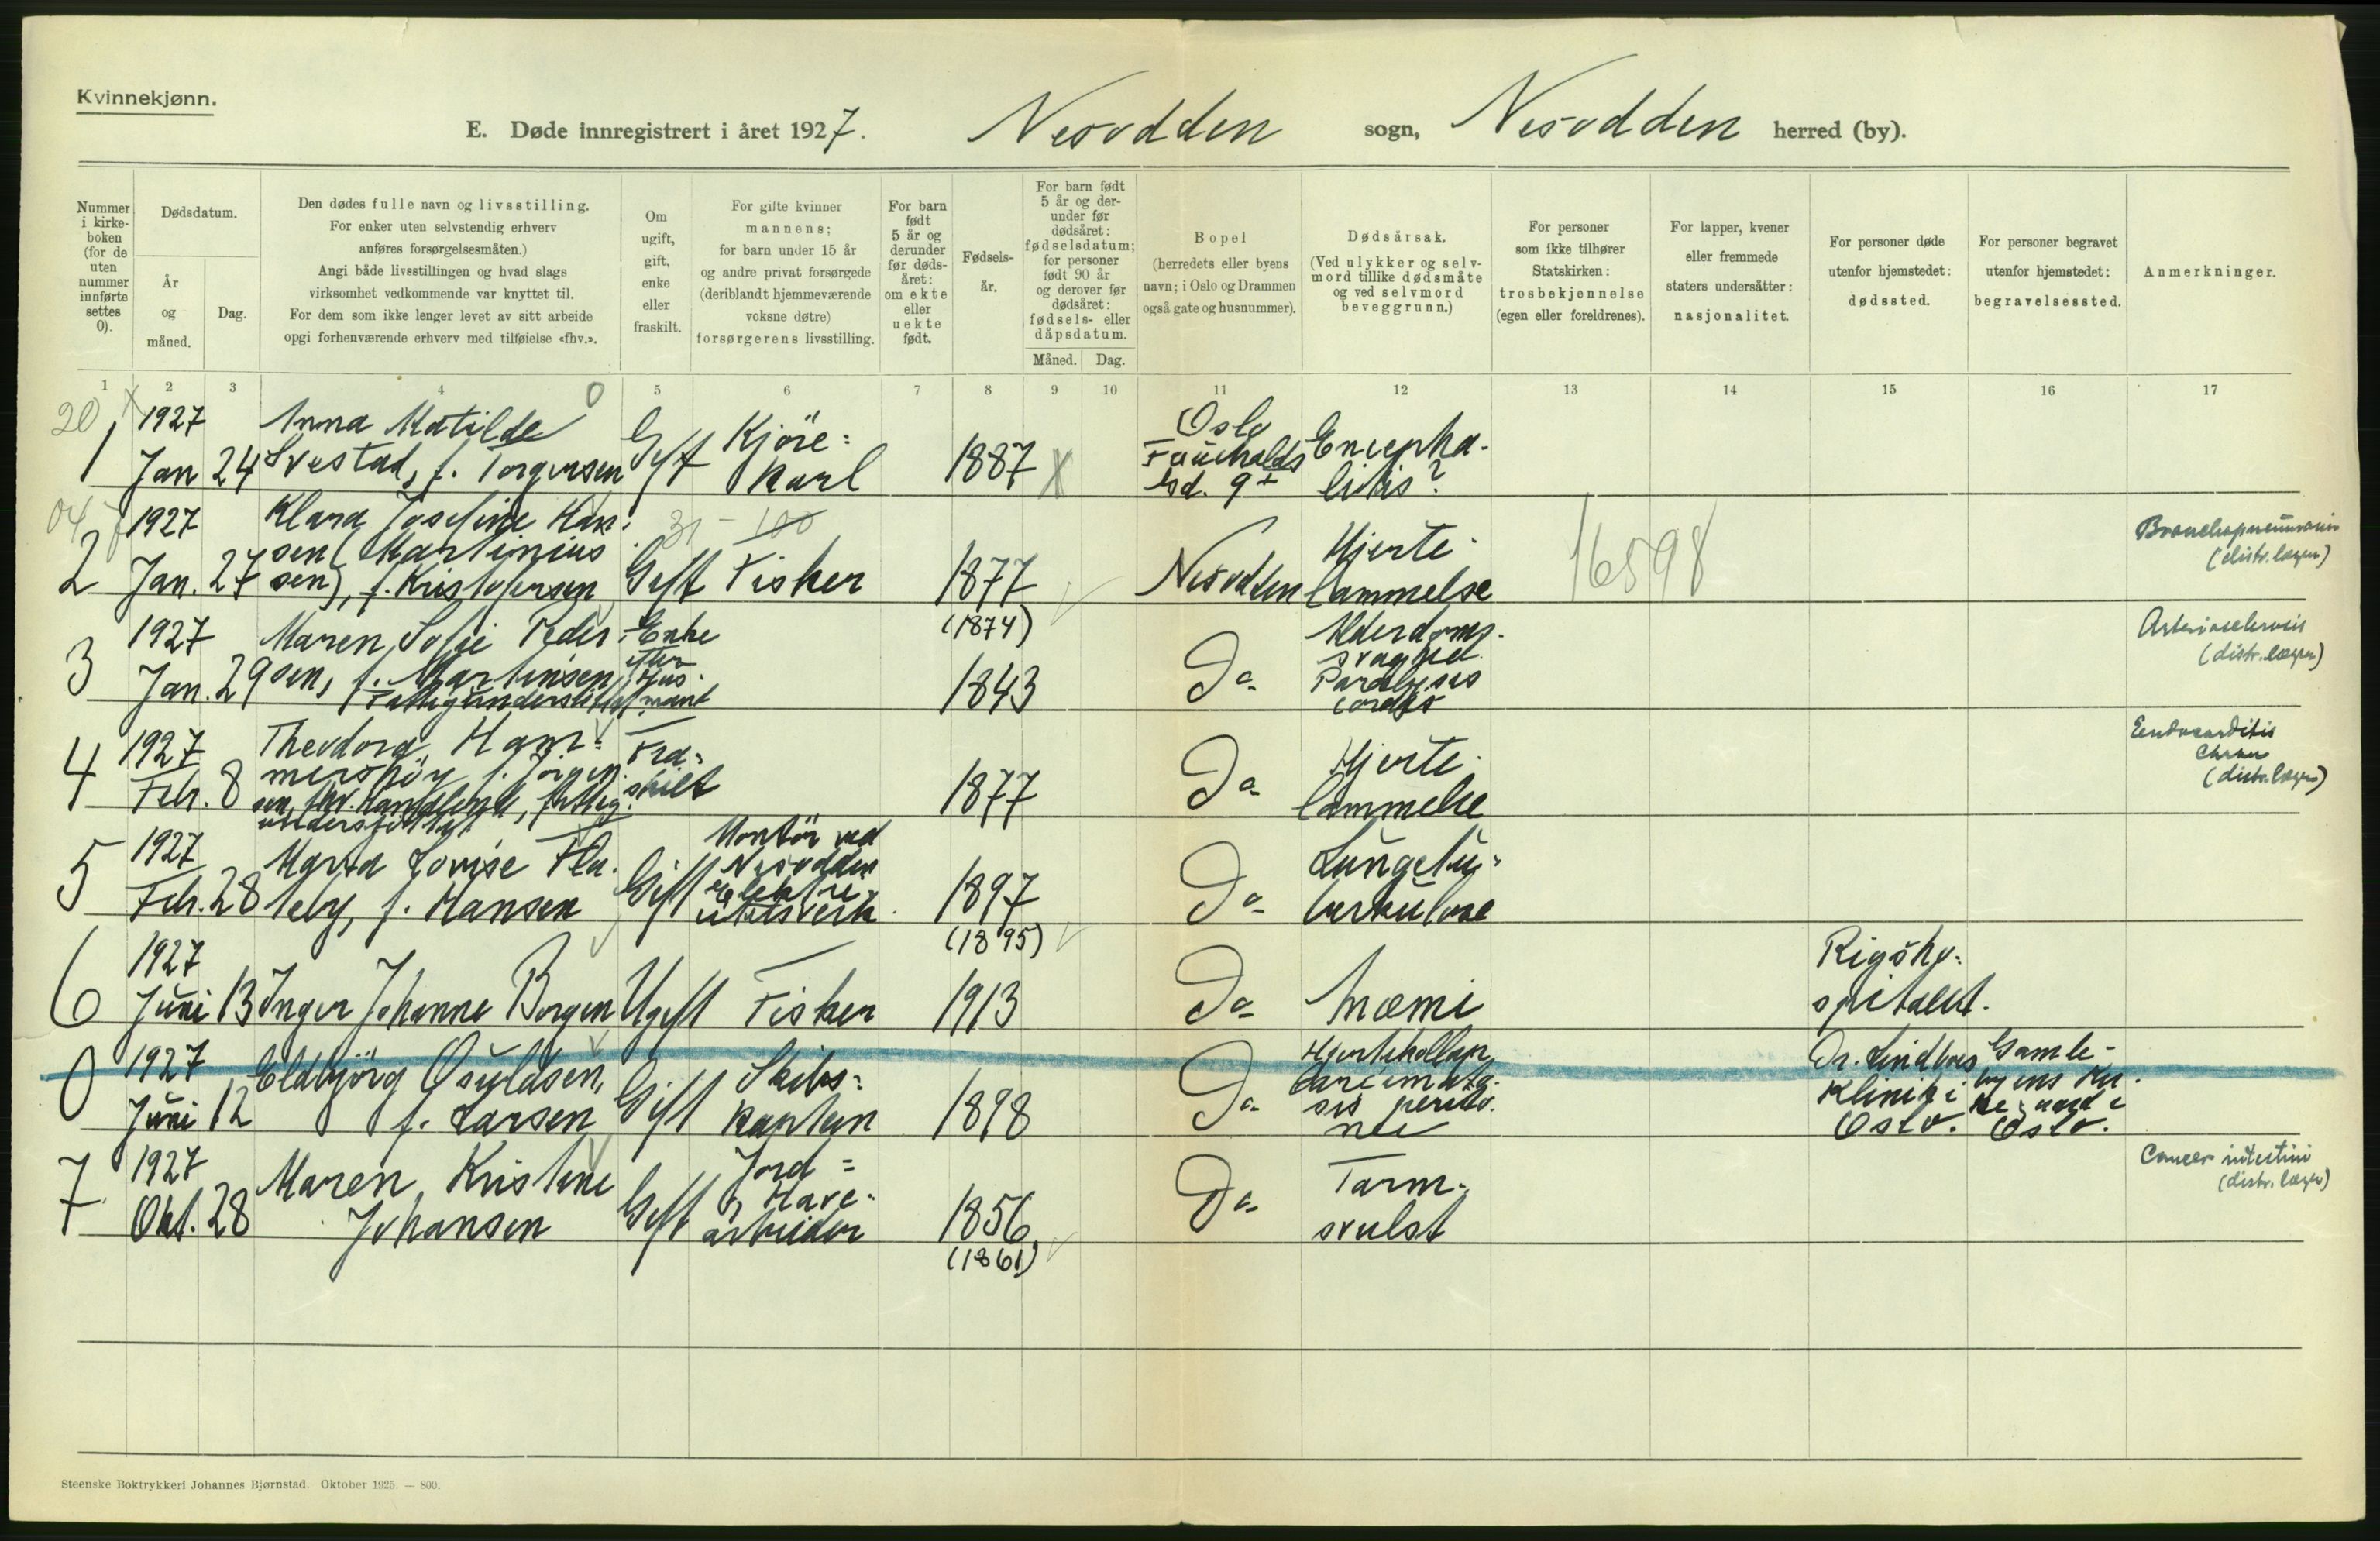 Kvinnekjønn.
E. Døde innregistrert i året 1927. Nesodden sogn, Nesodden herred (by).
Nummer i kirke-boken (for de uten nummer innførte settes 0).
Dødsdatum.
År og måned.
Dag.
Den dødes fulle navn og livsstilling.
For enker uten selvstendig erhverv
anføres forsørgelsesmåten.)
Angi både livsstillingen og hvad slags
virksomhet vedkommende var knyttet til.
For dem som ikke lenger levet av sitt arbeide
opgi forhenværende erhverv med tilføielse «fhv.».
Om ugift, gift, enke eller fraskilt.
For gifte kvinner
mannens;
for barn under 15 år
og andre privat forsørgede
(deriblandt hjemmeværende
voksne døtre)
forsørgerens livsstilling.
For barn født 5 år og derunder før døds-året: om ekte eller uekte født.
Fødsels-år.
For barn født
5 år og der-
under før
dødsåret:
fødselsdatum;
for personer
født 90 år
og derover før
dødsåret:
fødsels- eller
dåpsdatum.
Måned. Dag.
Bopel
(herredets eller byens
navn; i Oslo og Drammen
også gate og husnummer).
Dødsårsak.
(Ved ulykker og selv-
mord tillike dødsmåte
og ved selvmord
beveggrunn.)
For personer
som ikke tilhører
Statskirken:
trosbekjennelse
(egen eller foreldrenes).
For lapper, kvener
eller fremmede
staters undersåtter:
nasjonalitet.
For personer døde
utenfor hjemstedet:
dødssted.
For personer begravet
utenfor hjemstedet:
begravelsessted.
Anmerkninger.
1 2 3 4 5 6 7 8 9 10 11 12 13 14 15 16 17
20 1 1927 Jan 24 Anna Matilde
Svestad, f. Torgersen Gift Kjøre=
karl 1887 Oslo
gd. 9 Encepha-
litis?
04 2 1927 Jan. 27 Klara Josefine Han-
sen (Martinius
sen), f. Kristofersen Gift Fisker 1877
(1874) Nesodden Hjerte-
lammelse 16598 Bronchopneumonia
(distr.lægen)
3 1927 Jan. 29 Maren Sofie Peder-
sen, f. Martinsen
Fattigunderstøttet Enke
efter
hus-
mant 1843 Do Alderdoms-
svaghed
Paralysis
cordis Arteriosclerosis
(distr.lægen)
4 1927 Febr. 8 Theodora Ham-
f. Jörgen-
sen, fhv. Handlende, fattig-
understøttet Fra-
skilt 1877 Do Hjerte-
lammelse Endocarditis
chron
(distr.lægen)
5 1927 Febr. 28 Marta Lovise Fla-
teby, f. Hansen Gift Montör ved
Nesodden
Elektri-
citetsverk 1897
(1895) Do Lungetu-
berkulose
6 1927 Juni 13 Inger Johanne Borgen Ugift Fisker 1913 Do Anæmi Rigsho-
spitalet.
0 1927 Juni 12 Eldbjörg Osuldsen,
f. Larsen Gift Skibs-
kaptein 1898 Do Hjertekollaps
Carcinomato-
sis perito-
nei Dr. Lindboes
Klinik i
Oslo. Gamle-
byens Kir-
kegaard i
Oslo.
7 1927 Okt. 28 Maren Kristine
Johansen Gift Jord-
& Have-
arbeider 1856
(1861) Do Tarm-
svulst Cancer intestini
(distr.lægen)
Steenske Boktrykkeri Johannes Bjørnstad. Oktober 1925. — 800.